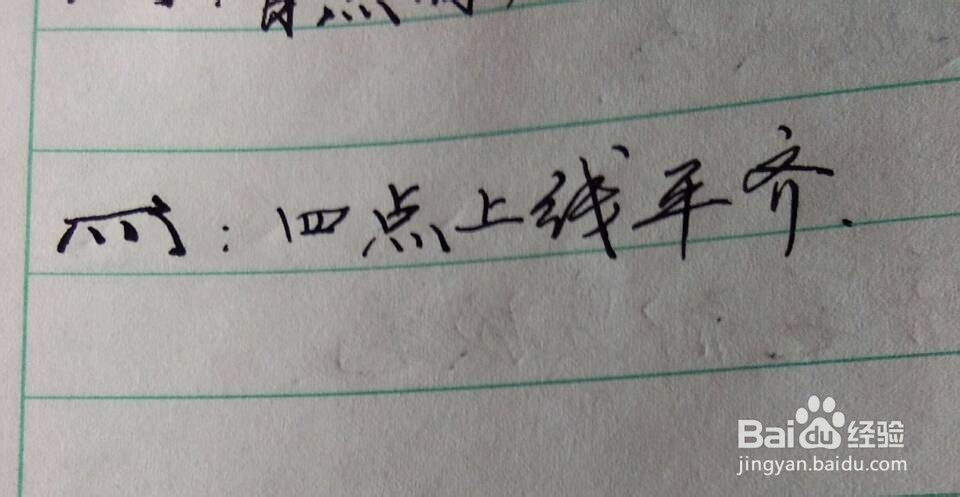 首点
灬：四点上线平齐.
Baidu经验
jingyan.baidu.com